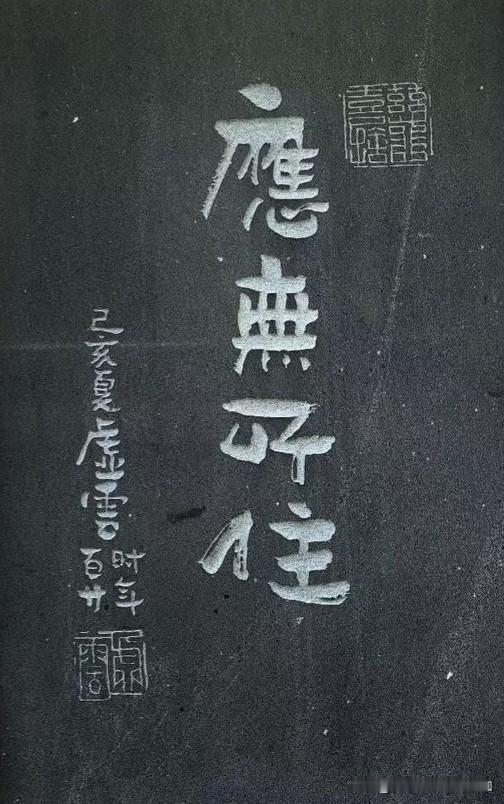 應無所住
己亥夏虛雲
时年
百廿
虛雲